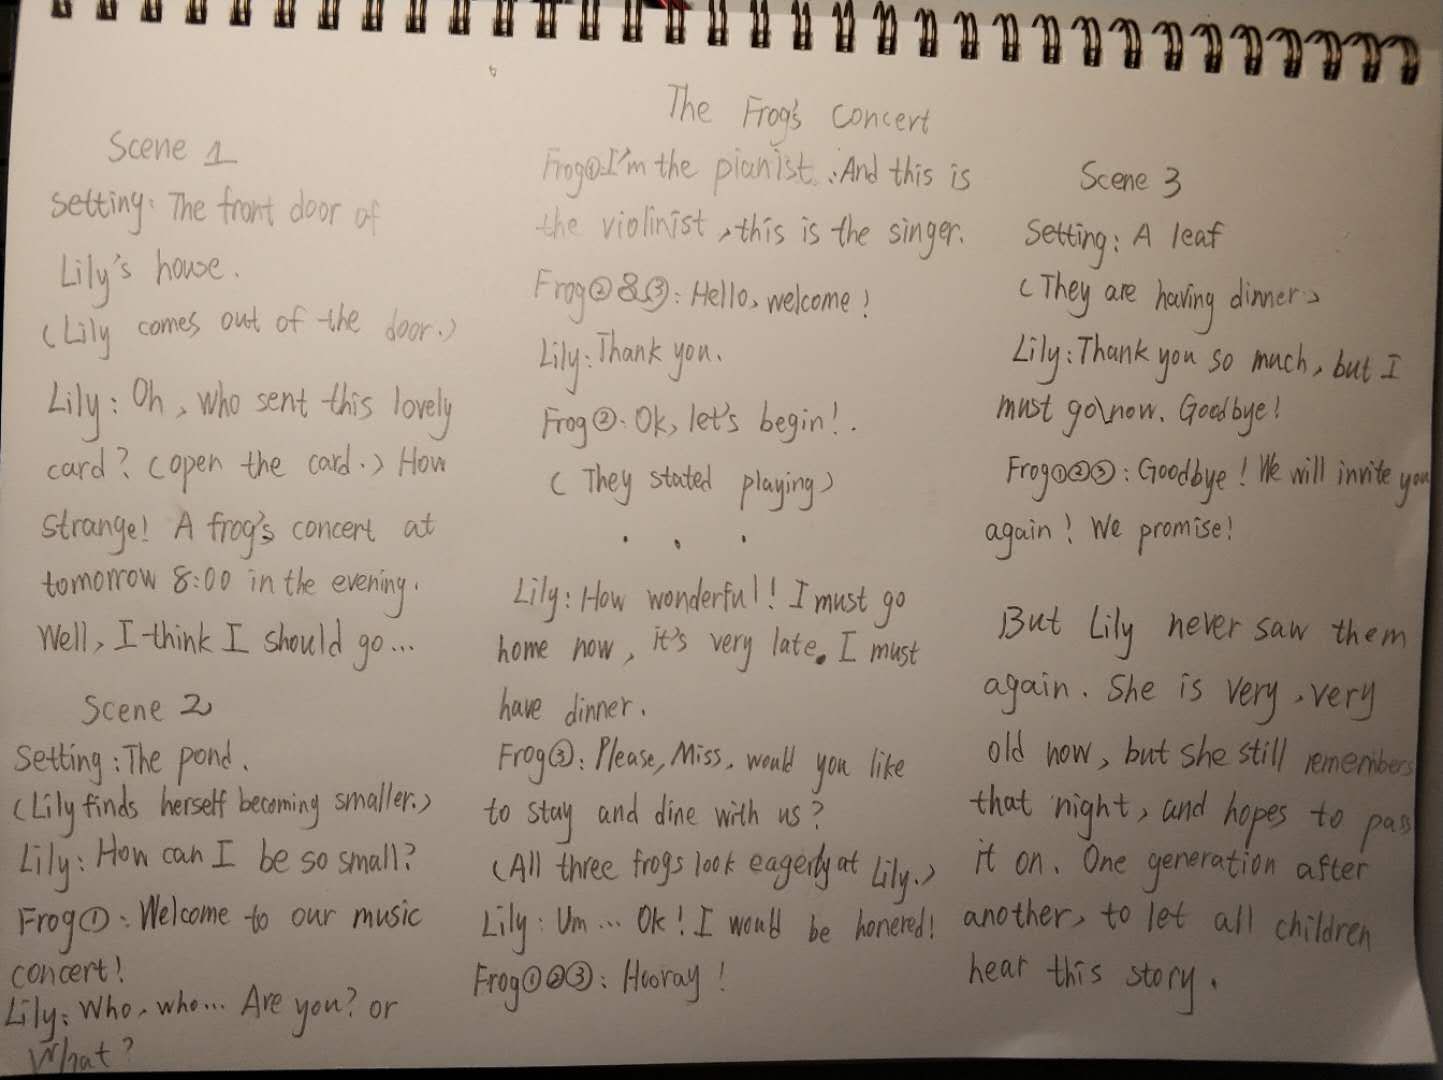 The Frog's Concert
Scene 1
Setting: The front door of
Lily's house.
(Lily comes out of the door.)
Lily: Oh, who sent this lovely
card? (open the card.) How
strange! A frog's concert at
tomorrow 8:00 in the evening.
Well, I think I should go...
Scene 2
Setting: The pond.
(Lily finds herself becoming smaller.)
Lily: How can I be so small?
Frog①: Welcome to our music
concert!
Lily: Who, who... Are you? or
What?
Frog①: I'm the pianist. And this is
the violinist, this is the singer.
Frog②&③: Hello, welcome!
Lily: Thank you.
Frog②: Ok, let's begin!.
(They stated playing)
. . .
Lily: How wonderful! I must go
home now, it's very late. I must
have dinner.
Frog③: Please, Miss, would you like
to stay and dine with us?
(All three frogs look eagerly at Lily.)
Lily: Um... Ok! I would be honered!
Frog①②③: Hooray!
Scene 3
Setting: A leaf
(They are having dinner)
Lily: Thank you so much, but I
must go now. Goodbye!
Frog①②③: Goodbye! We will invite you
again! We promise!
But Lily never saw them
again. She is very, very
old now, but she still remembers
that night, and hopes to pass
it on. One generation after
another, to let all children
hear this story.